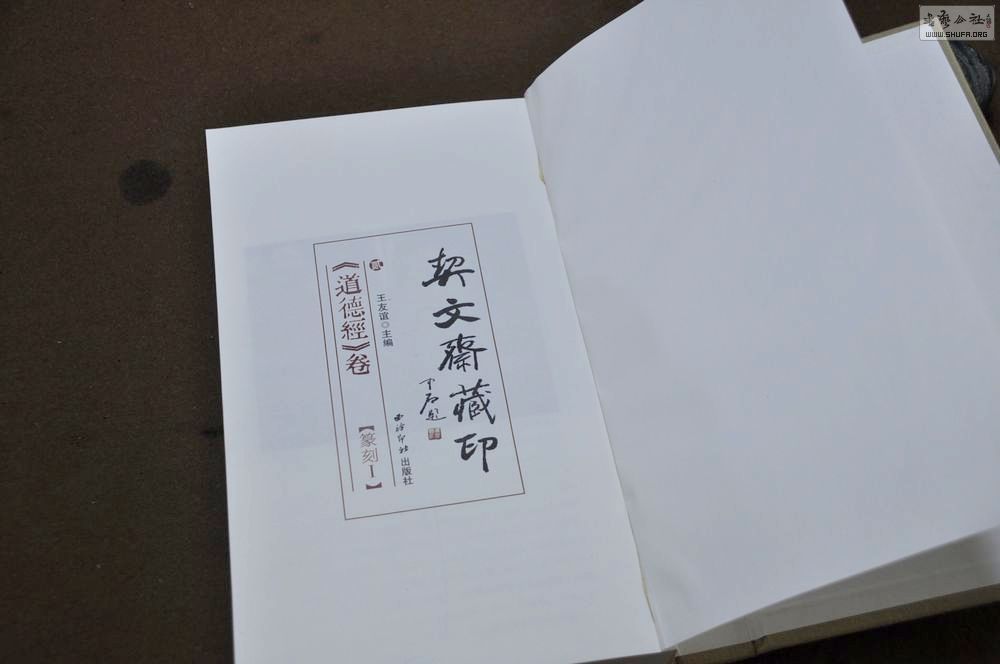 契文齋藏印
西泠印社出版社
王友谊◎主编
贰
《道德經》卷
【篆刻Ⅰ】
書藝公社
WWW.SHUFA.ORG